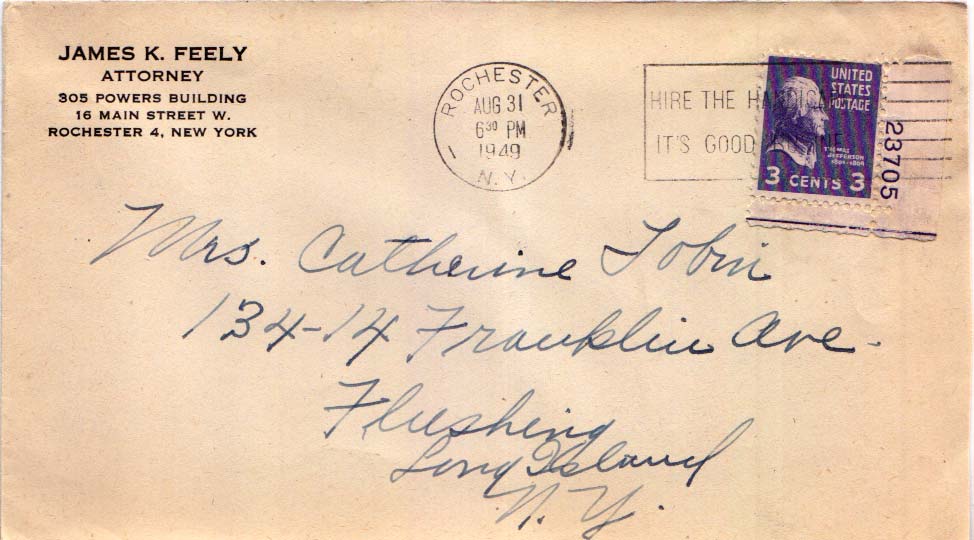 JAMES K. FEELY
ATTORNEY
305 POWERS BUILDING
16 MAIN STREET W.
ROCHESTER 4, NEW YORK
ROCHESTER
AUG 31
6 30 PM
1949
N.Y.
HIRE THE HANDICA
IT'S GOOD
UNITED
STATES
POSTAGE
THOMAS
JEFFERSON
1801-1809
3 CENTS 3
23705
Mrs. Catherine Tobin
134-14 Franklin Ave.
Flushing
Long Island
N.Y.